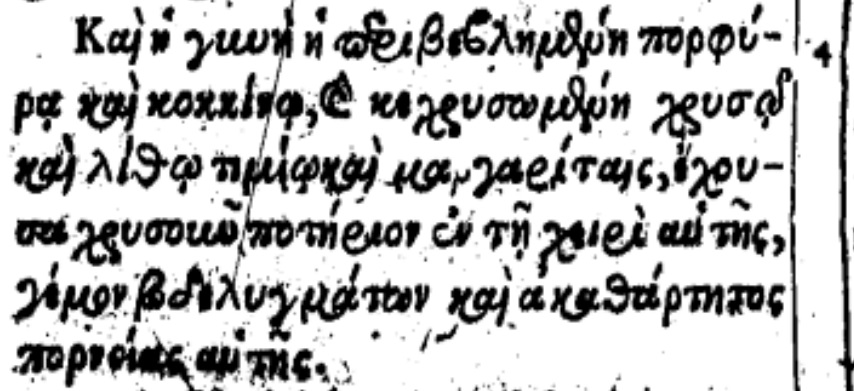 Καὶ ἡ γυνὴ ἡ περιβεβλημένη πορφύ- 4
ρᾳ καὶ κοκκίνῳ, καὶ κεχρυσωμένη χρυσῷ
καὶ λίθῳ τιμίῳ καὶ μαργαρίταις, ἔχου-
σα χρυσοῦν ποτήριον ἐν τῇ χειρὶ αὐτῆς,
γέμον βδελυγμάτων καὶ ἀκαθάρτητος
πορνείας αὐτῆς.